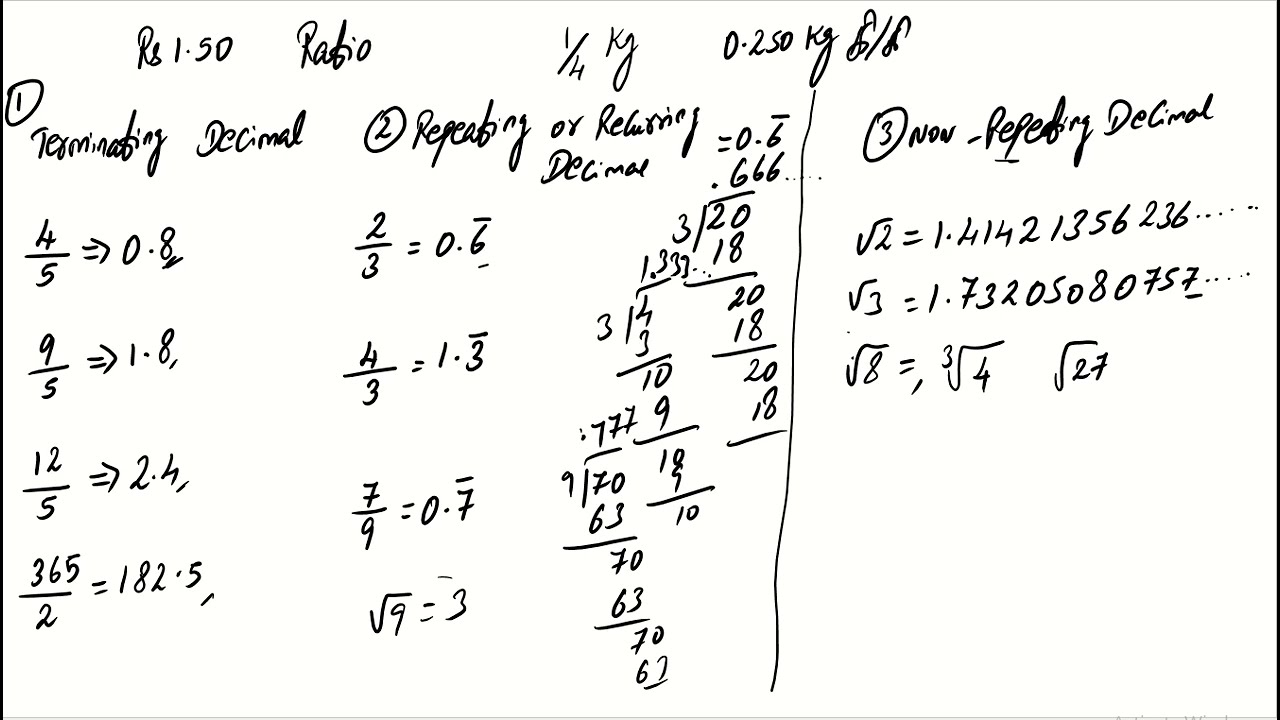 Rs 1.50 Ratio 1/4 Kg 0.250 Kg
① Terminating Decimal
4/5 ⇒ 0.8,
9/5 ⇒ 1.8,
12/5 ⇒ 2.4,
365/2 = 182.5,
② Repeating or Recurring
Decimal
2/3 = 0.6̅
4/3 = 1.3̅
7/9 = 0.7̅
√9 = 3
= 0.6̅
.666.....
3 20
18
20
18
20
18
1.333...
3 4
3
10
9
10
9
10
.777
9 70
63
70
63
70
63
③ Non-Repeating Decimal
√2 = 1.41421356236.....
√3 = 1.73205080757.....
√8 =, ³√4 √27